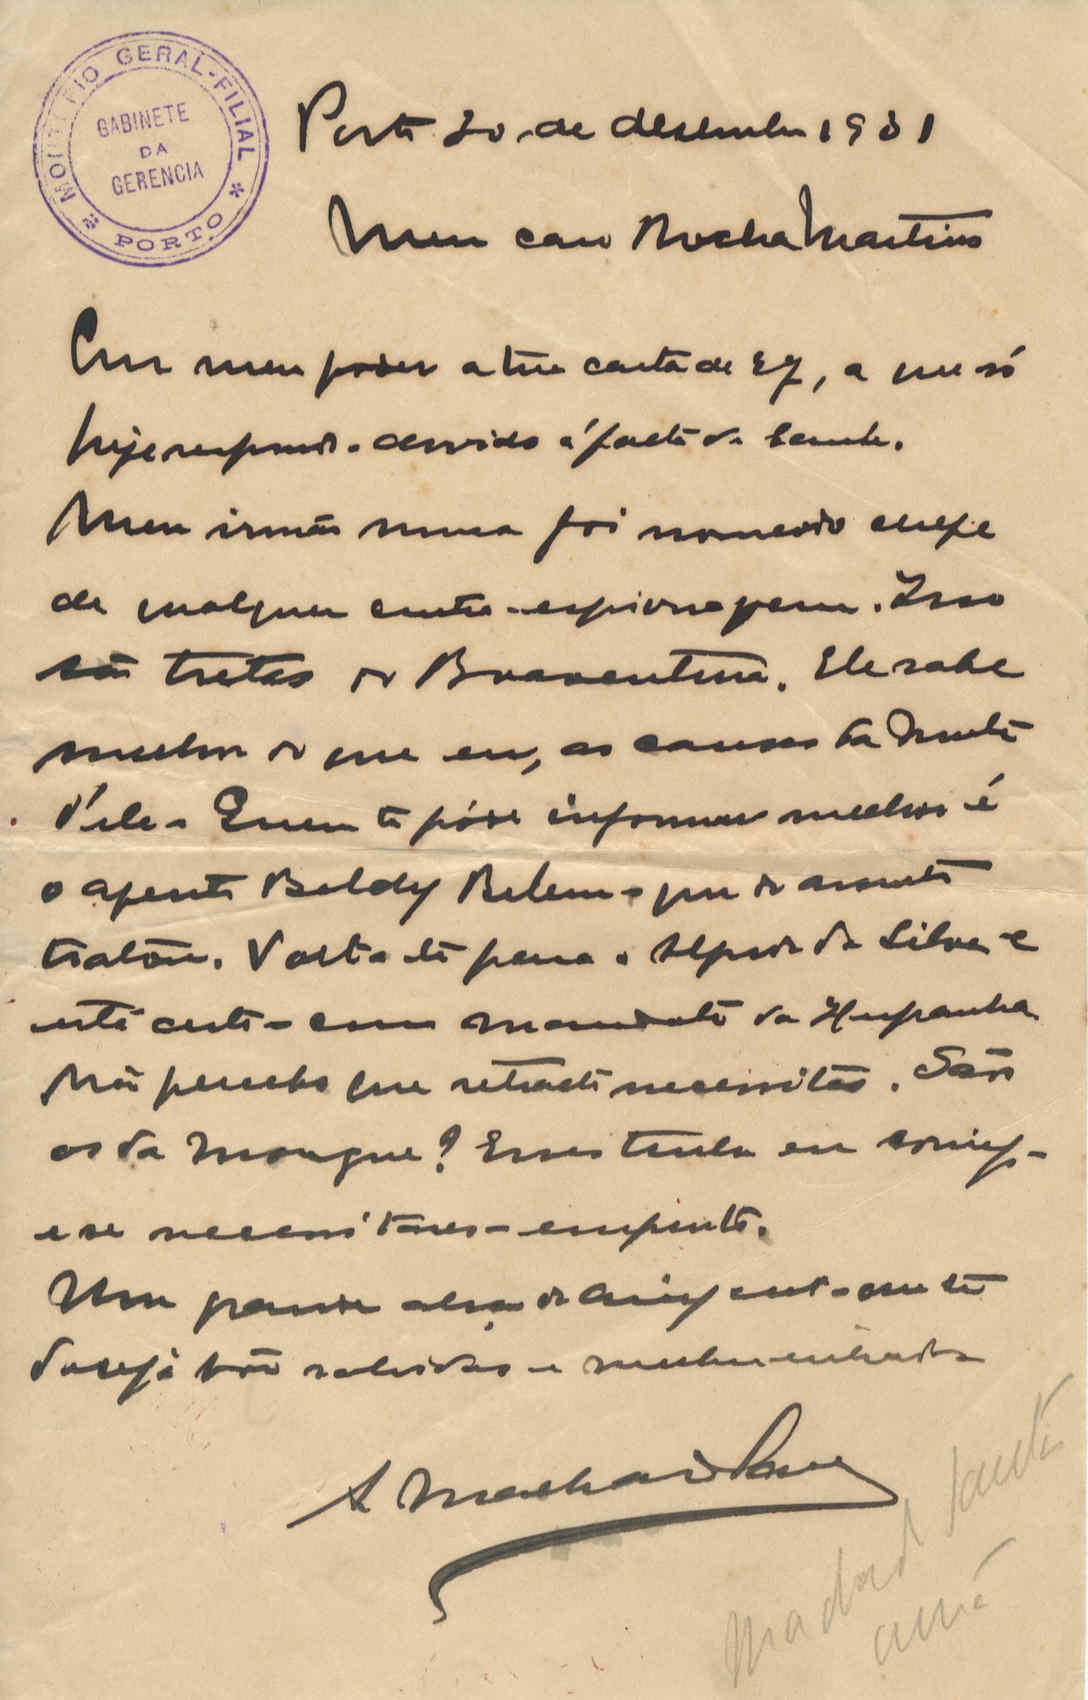 MONTEPIO GERAL-FILIAL
PORTO
GABINETE
DA
GERENCIA
Porto 30 de desembro 1931
Meu caro Rocha Martins
Em meu poder a tua carta de 27, a que só
hoje respondo devido á falta de saude.
Meu irmão nunca foi nomeado chefe
de qualquer contra-espionagem. Isso
são tretas do Boaventura. Ele sabe
melhor do que eu, as causas da morte
d'ele. Quem te póde informar melhor é
o agente Baldy Belem que do assunto
tratou. para o da Silva e
está certo da Hespanha
Não percebo que retrato necessitas. São
os da Mongue? Esses tenho eu comigo
e se necessitares
Um grande abraço do amigo que te
deseja bôa
A Machado Santos
Machado Santos
irmão